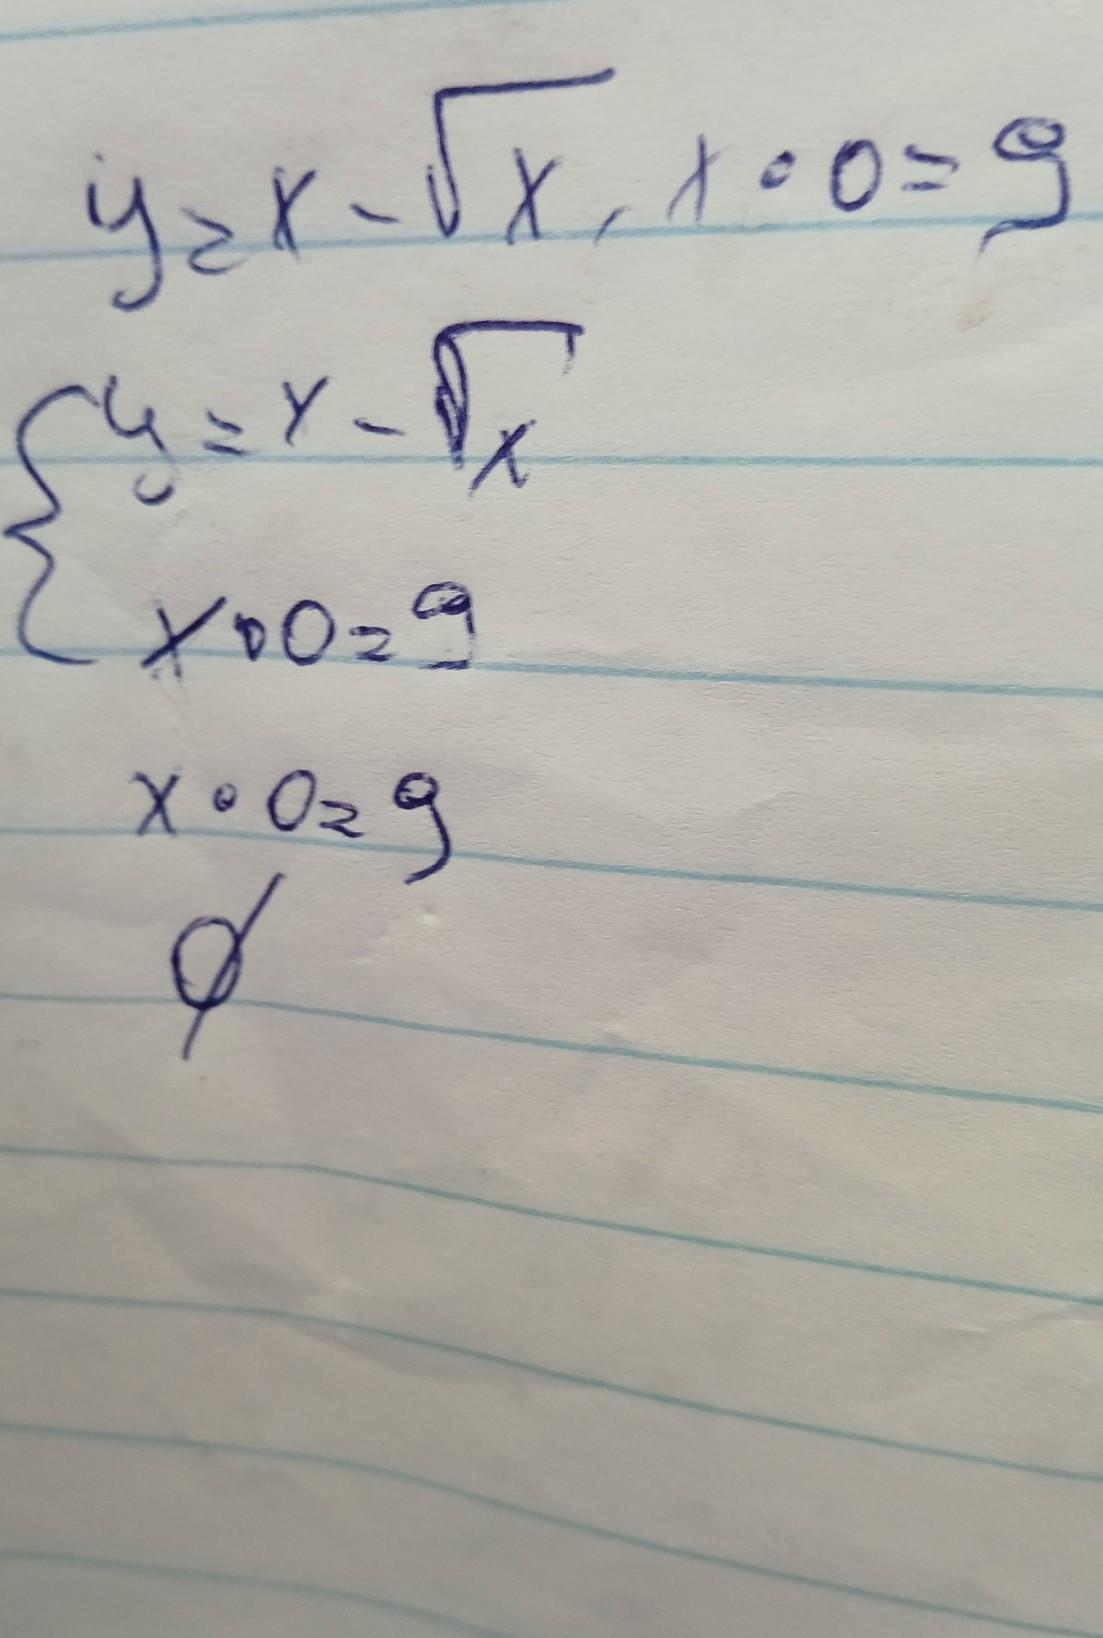 y = x - √x, x • 0 = 9
{ y = x - √x
x • 0 = 9
x • 0 = 9
∅